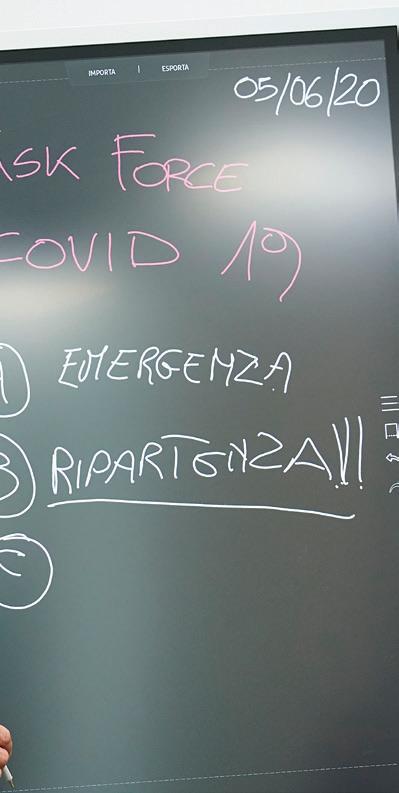 IMPORTA | ESPORTA
05/06/20
ASK FORCE
COVID 19
A EMERGENZA
B RIPARTENZA!!!
C